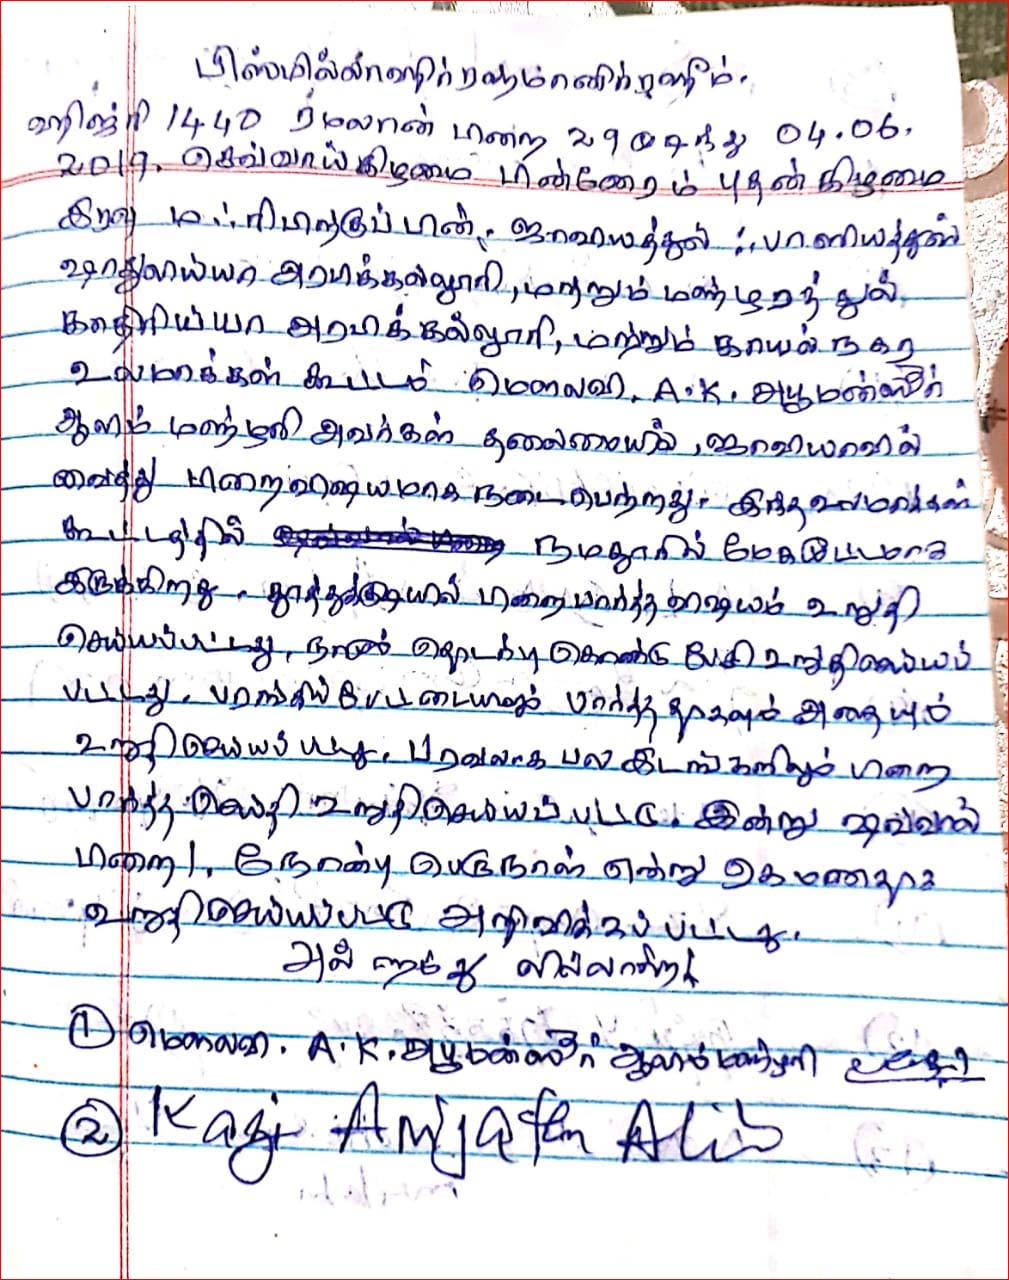 பிஸ்மில்லாஹிர்ரஹ்மானிர்ரஹீம்.
ஹிஜ்ரி 1440 ரமலான் பிறை 29 முடிந்து 04.06.
2019. செவ்வாய்கிழமை பின்னேரம் புதன்கிழமை
இரவு மஃரிபிற்குப் பின், ஜாவியத்துல் ஃபாஸியத்துஸ்
ஷாதுலிய்யா அரபிக்கல்லூரி, மற்றும் மஹ்ழறத்துல்
காதிரிய்யா அரபிக் கல்லூரி, மற்றும் காயல் நகர
உலமாக்கள் கூட்டம் மௌலவி. A.K. அபூமன்ஸூர்
ஆலிம் மஹ்ழரி அவர்கள் தலைமையில், ஜாவியாவில்
வைத்து பிறைவிஷயமாக நடைபெற்றது. இந்த உலமாக்கள்
கூட்டத்தில் நமதூரில் மேகமூட்டமாக
இருக்கிறது. தூத்துக்குடியில் பிறைபார்த்த விஷயம் உறுதி
செய்யப்பட்டது, நாம் தொடர்பு கொண்டு பேசி உறுதிசெய்யப்
பட்டது. பரங்கிப்பேட்டையிலும் பார்த்ததாகவும் அதையும்
உறுதிசெய்யப்பட்டது. பரவலாக பல இடங்களிலும் பிறை
பார்த்த செய்தி உறுதிசெய்யப்பட்டு. இன்று ஷவ்வால்
பிறை 1, நோன்பு பெருநாள் என்று ஏகமனதாக
உறுதிசெய்யப்பட்டு அறிவிக்கப் பட்டது.
அல் ஹம்து லில்லாஹ்!
① மௌலவி. A.K. அபூமன்ஸூர் ஆலிம் மஹ்ழரி
② Kazi Amjath Ali